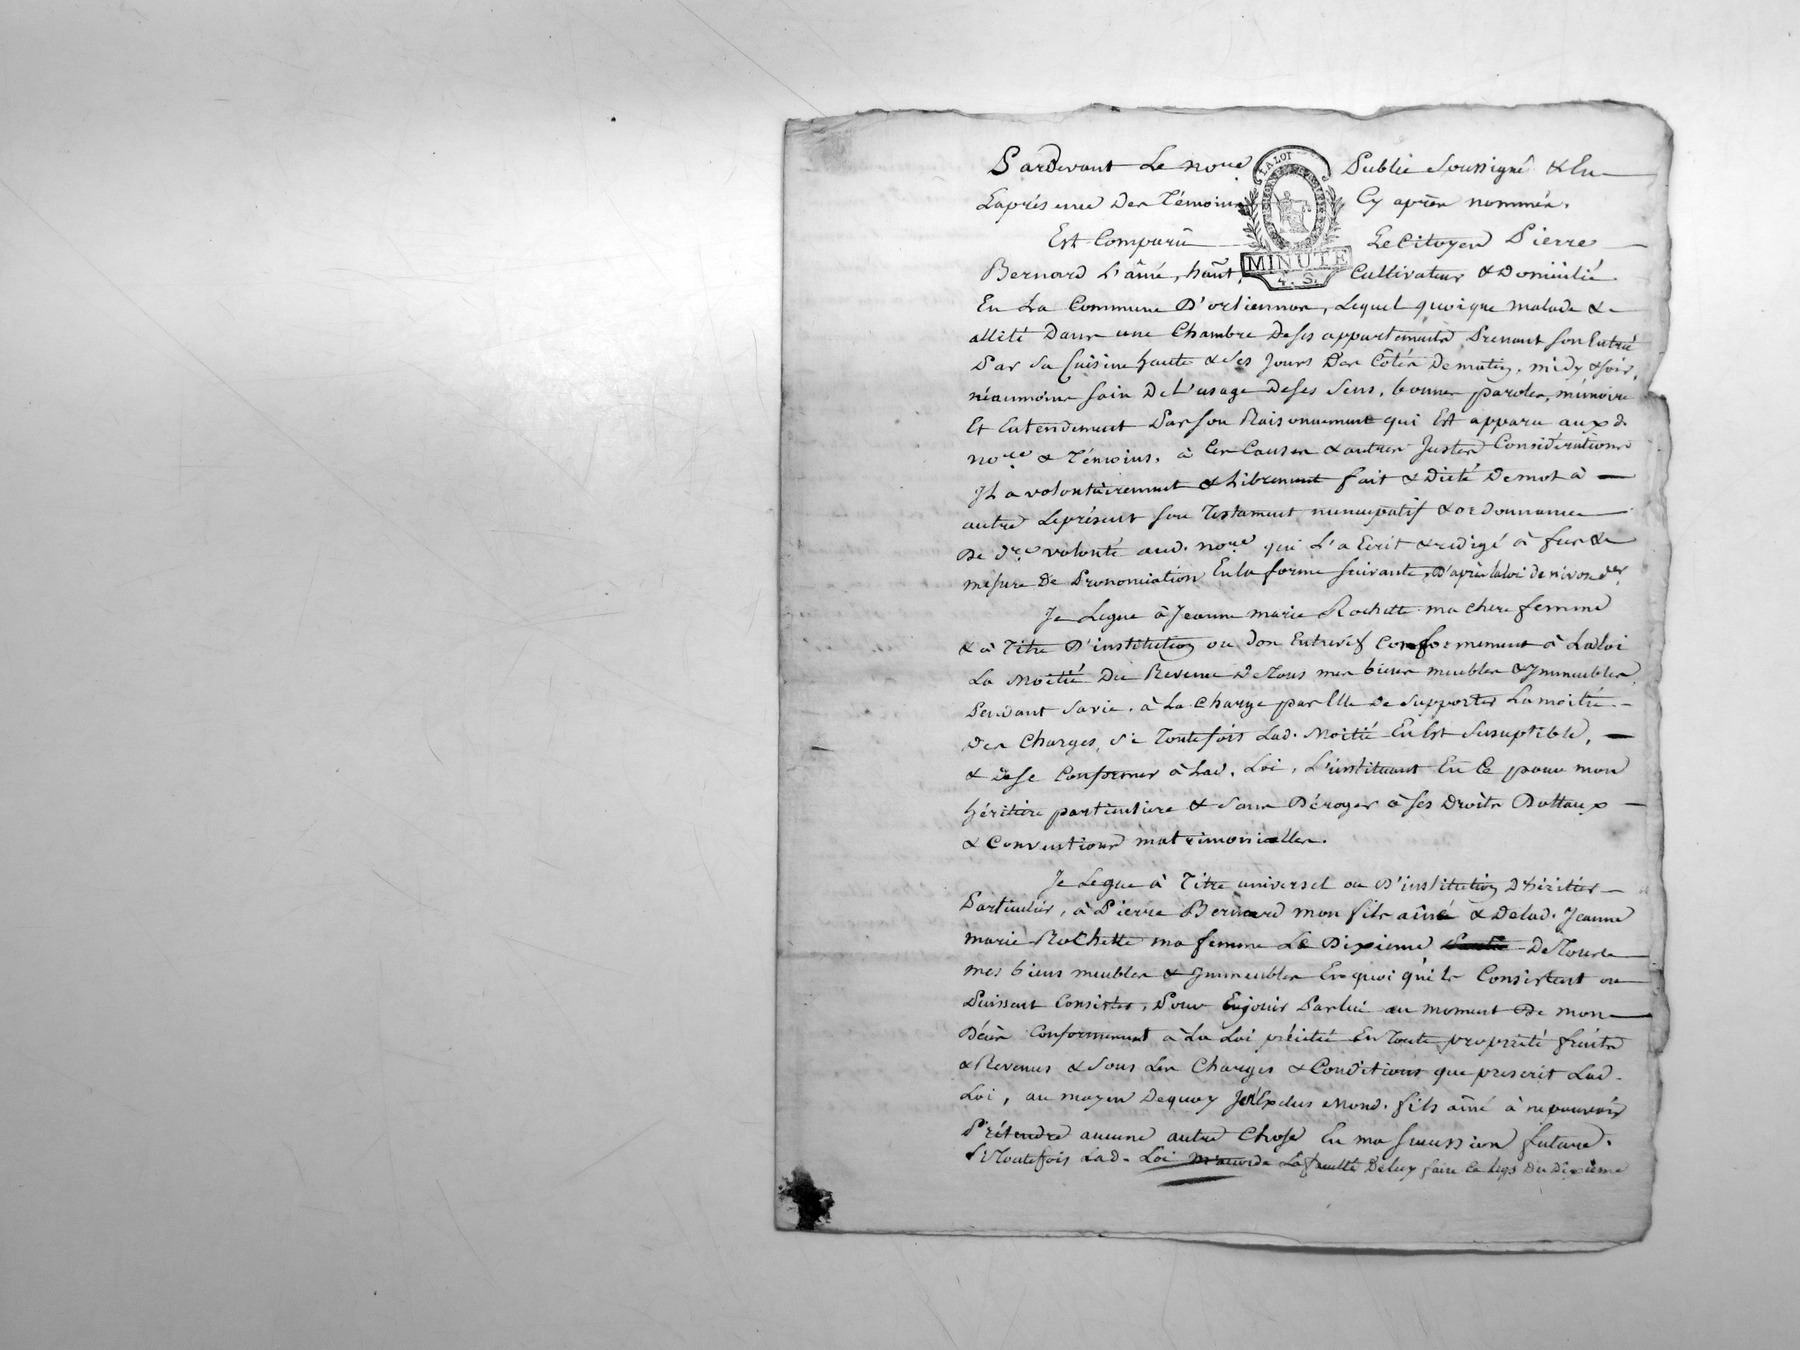 Pardevant Le no.re Public Soussigné & En
Laprésence Des Témoins Cy après nommés.
LA LOI
MINUTE
4. S.
Est Comparu Le Citoyen Pierre
Bernard L'aîné, Cultivateur & Domicilié
En La Commune D' Lequel quoique malade &
allité Dans une Chambre De ses appartements Prenant son Entrée
Par sa Cuisine haute & ses Jours Des Côtés De matin, midy & soir,
néanmoins sain De L'usage De ses Sens, bonnes paroles, mémoire
Et Entendement Par son Raisonnement qui Est apparu aux d.
no.re & Témoins, à Ces Causes & autres Justes Considérations
Il a volontairement & Librement fait & Dicté De mot à
autre Le présent son Testament nuncupatif & ordonnance
De d.re volonté aud. no.re qui L'a Ecrit & rédigé à fur &
mesure De Prononciation En la forme suivante, D'après la loi de nivose d.er
Je Legue à Jeanne marie Rochette ma chere femme
& à Titre D'institution ou don Entrevif Conformement à La loi
La Moitié Du Revenu De Tous mes biens meubles & Immeubles,
Pendant sa vie, à La Charge par Elle De Supporter La moitié
Des Charges, Si Toutefois Lad. Moitié En Est Susceptible,
& De se Conformer à Lad. Loi, L'instituant En Ce pour mon
héritière particuliere & Sans Déroger à ses Droits Dottaux
& Conventions matrimonialles.
Je Legue à Titre universel ou D'institution D'héritier
Particulier, à Pierre Bernard mon fils aîné & De lad. Jeanne
marie Rochette ma femme Le Dixieme De Tous Les
mes biens meubles & Immeubles En quoi qu'ils Consistent ou
Puissent Consister, Pour En jouir Par lui au moment De mon
Décès Conformement à La Loi précitée En Toute propriété fruits
& Revenus & Sous Les Charges & Conditions que prescrit Lad.
Loi, au moyen De quoy J'Exclus Mond. fils aîné à ne pouvoir
Prétendre aucune autre Chose En ma Sucession future.
Si Toutefois Lad. Loi m'accorde La faculté De luy faire Ce legs Du Dixieme